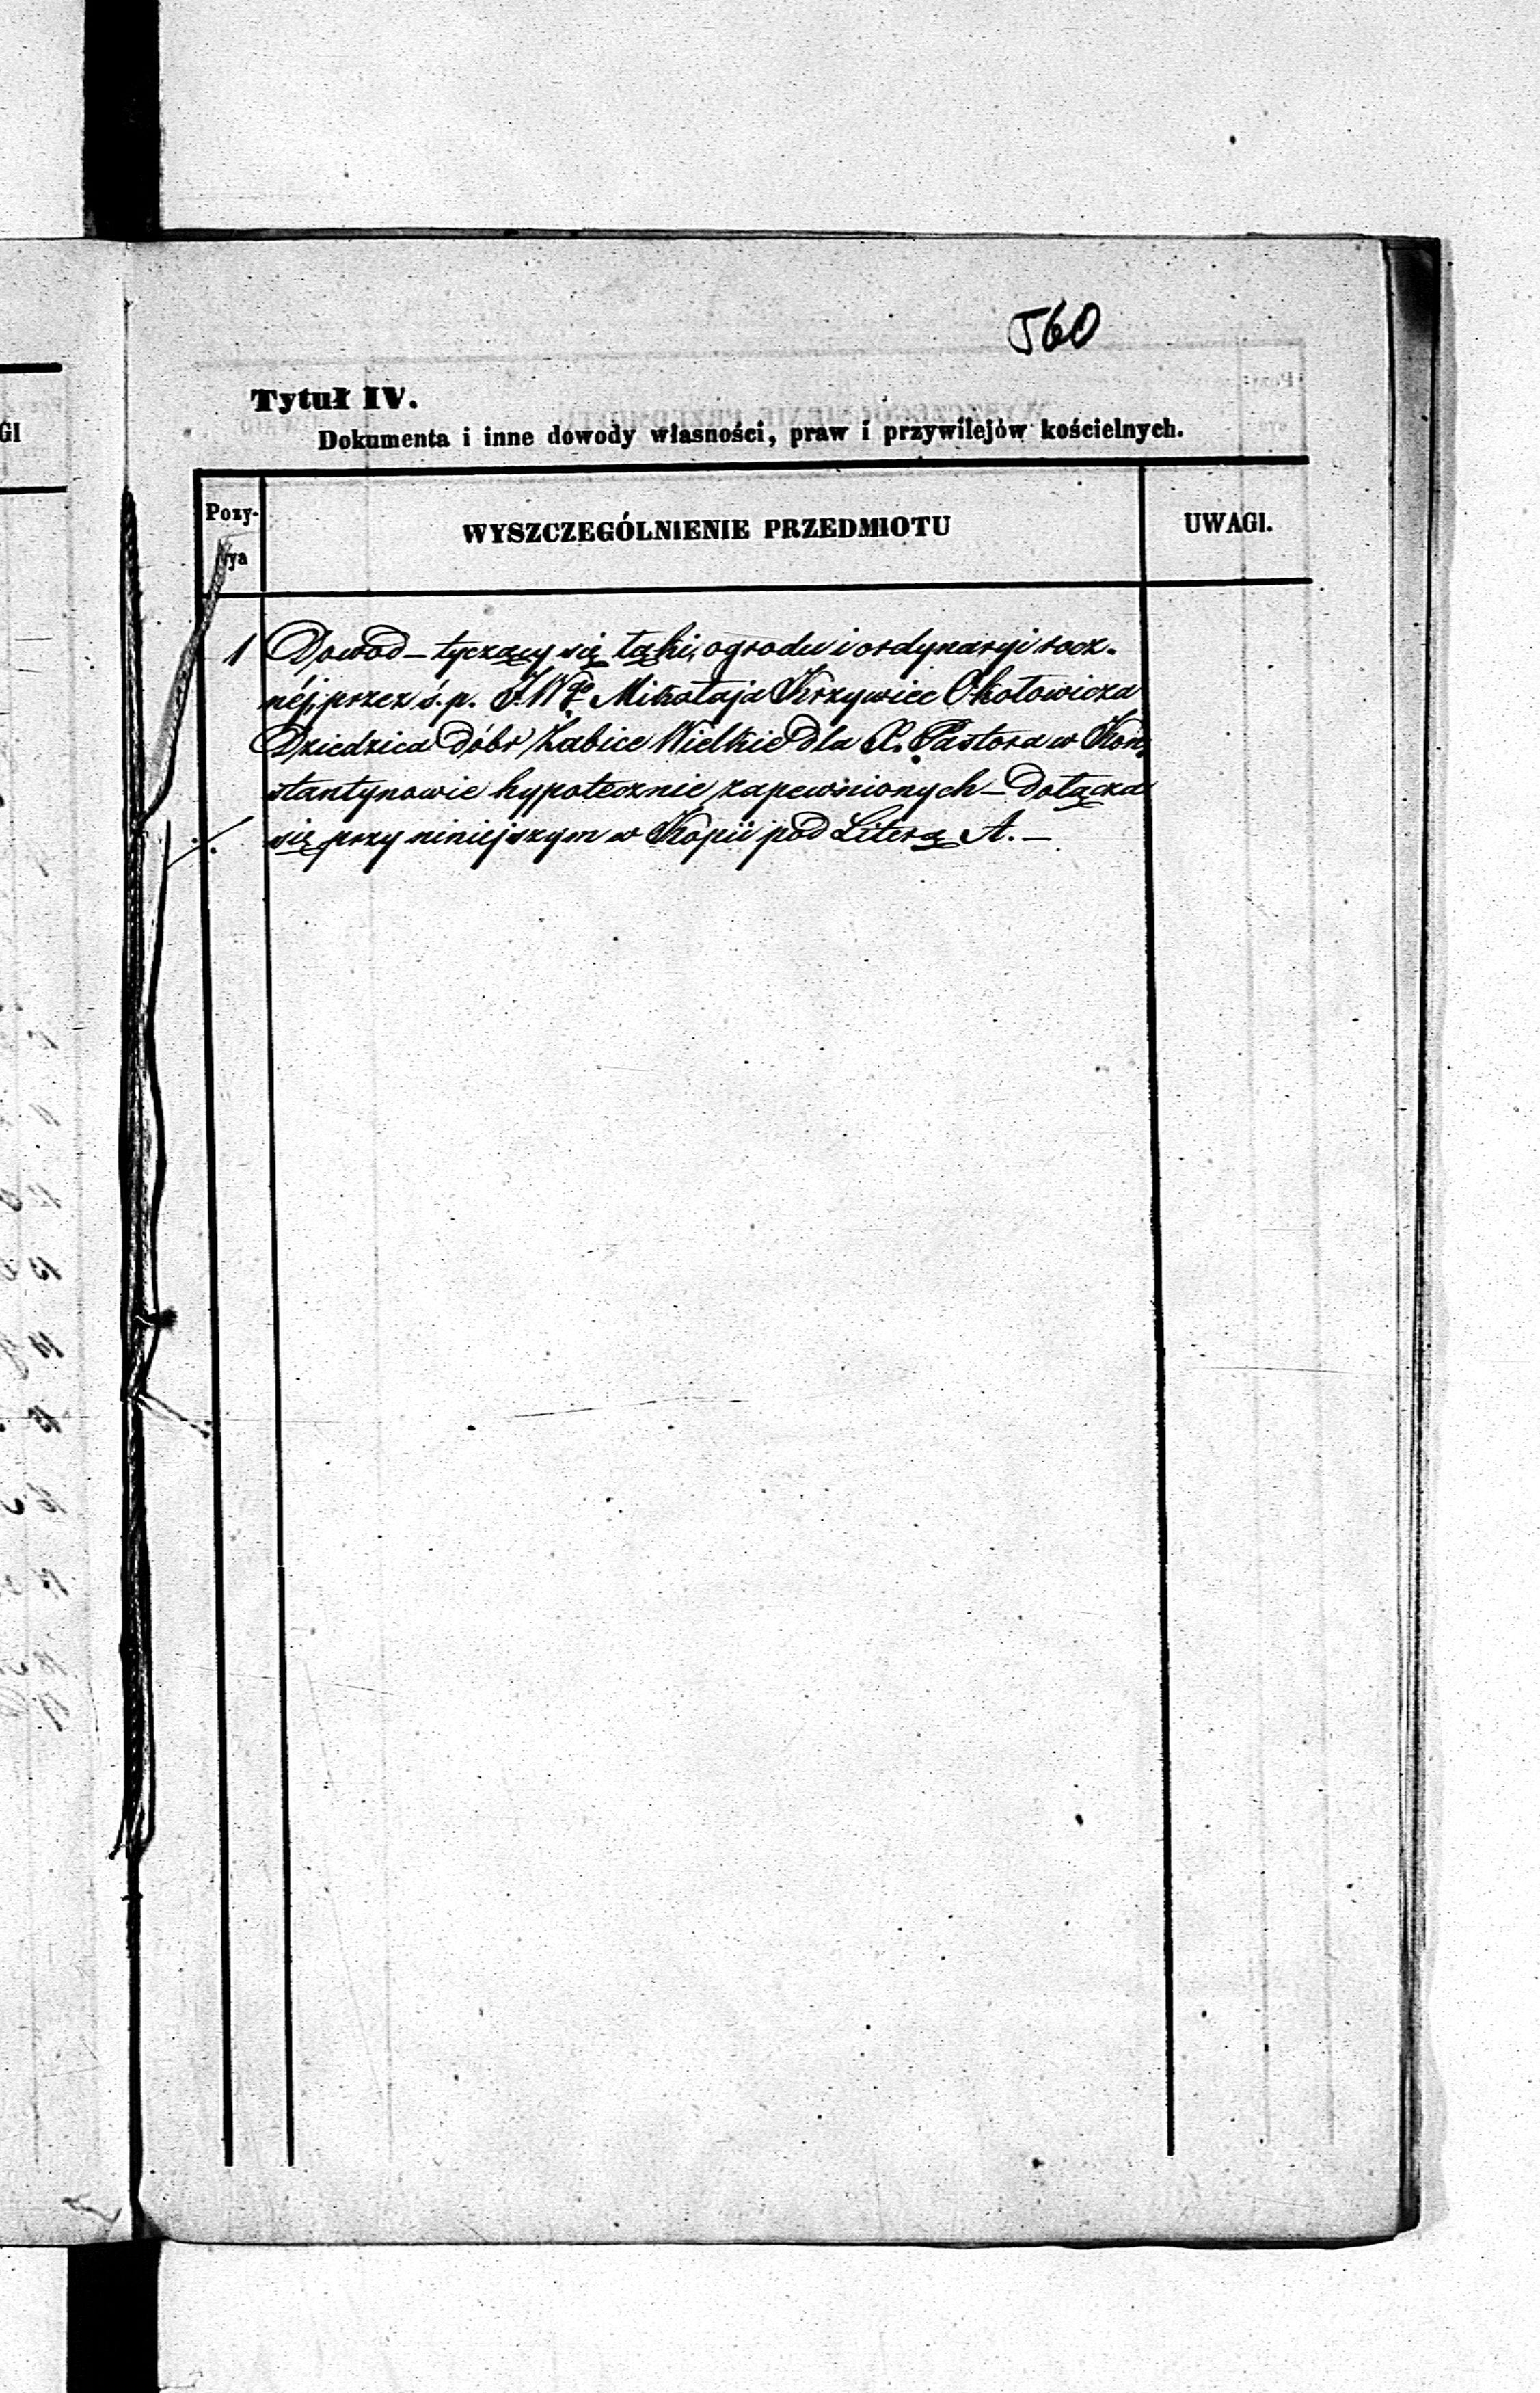 560
Tytuł IV.
Dokumenta i inne dowody własności, praw i przywilejów kościelnych.
Pozy-
cya
WYSZCZEGÓLNIENIE PRZEDMIOTU
UWAGI.
GI
1 Dowod – tyczący się łąki, ogrodu i ordynaryi rocz-
néj, przez ś. p. J. Wgo Mikołaja Krzywiec Okołowicza
Dziedzica Dóbr Żabice Wielkie dla X. Pastora w Kon-
stantynowie hypotecznie zapewnionych – Dołącza
się przy niniejszym w Kopii pod Literą A. –